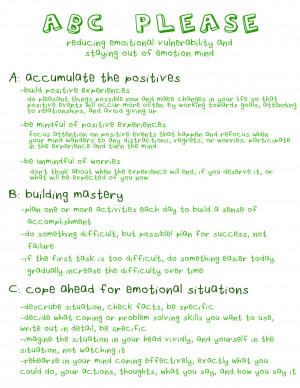 ABC PLEASE
reducing emotional vulnerability and
staying out of emotion mind
A: accumulate the positives
-build positive experiences
do pleasant things possible now and make changes in your life so that
positive events will occur more often by working towards goals, attending
to relationships, and avoid giving up
-be mindful of positive experiences
focus attention on positive events that happen and refocus when
your mind wanders to any distractions, regrets, or worries; participate
in the experience and turn the mind
-be unmindful of worries
don't think about when the experience will end, if you deserve it, or
what will be expected of you now
B: building mastery
-plan one or more activities each day to build a sense of
accomplishment
-do something difficult, but possible! plan for success, not
failure
-if the first task is too difficult, do something easier today
gradually increase the difficulty over time
C: cope ahead for emotional situations
-describe situation, check facts, be specific
-decide what coping or problem solving skills you want to use,
write out in detail, be specific
-imagine the situation in your head vividly, and yourself in the
situation, not watching it
-rehearse in your mind coping effectively, exactly what you
could do, your actions, thoughts, what you say, and how you say it